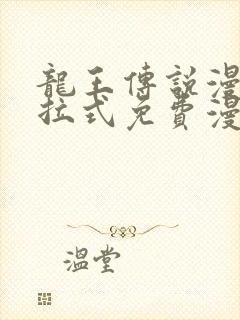 龍王傳說漫
拉式免費漫
溫堂